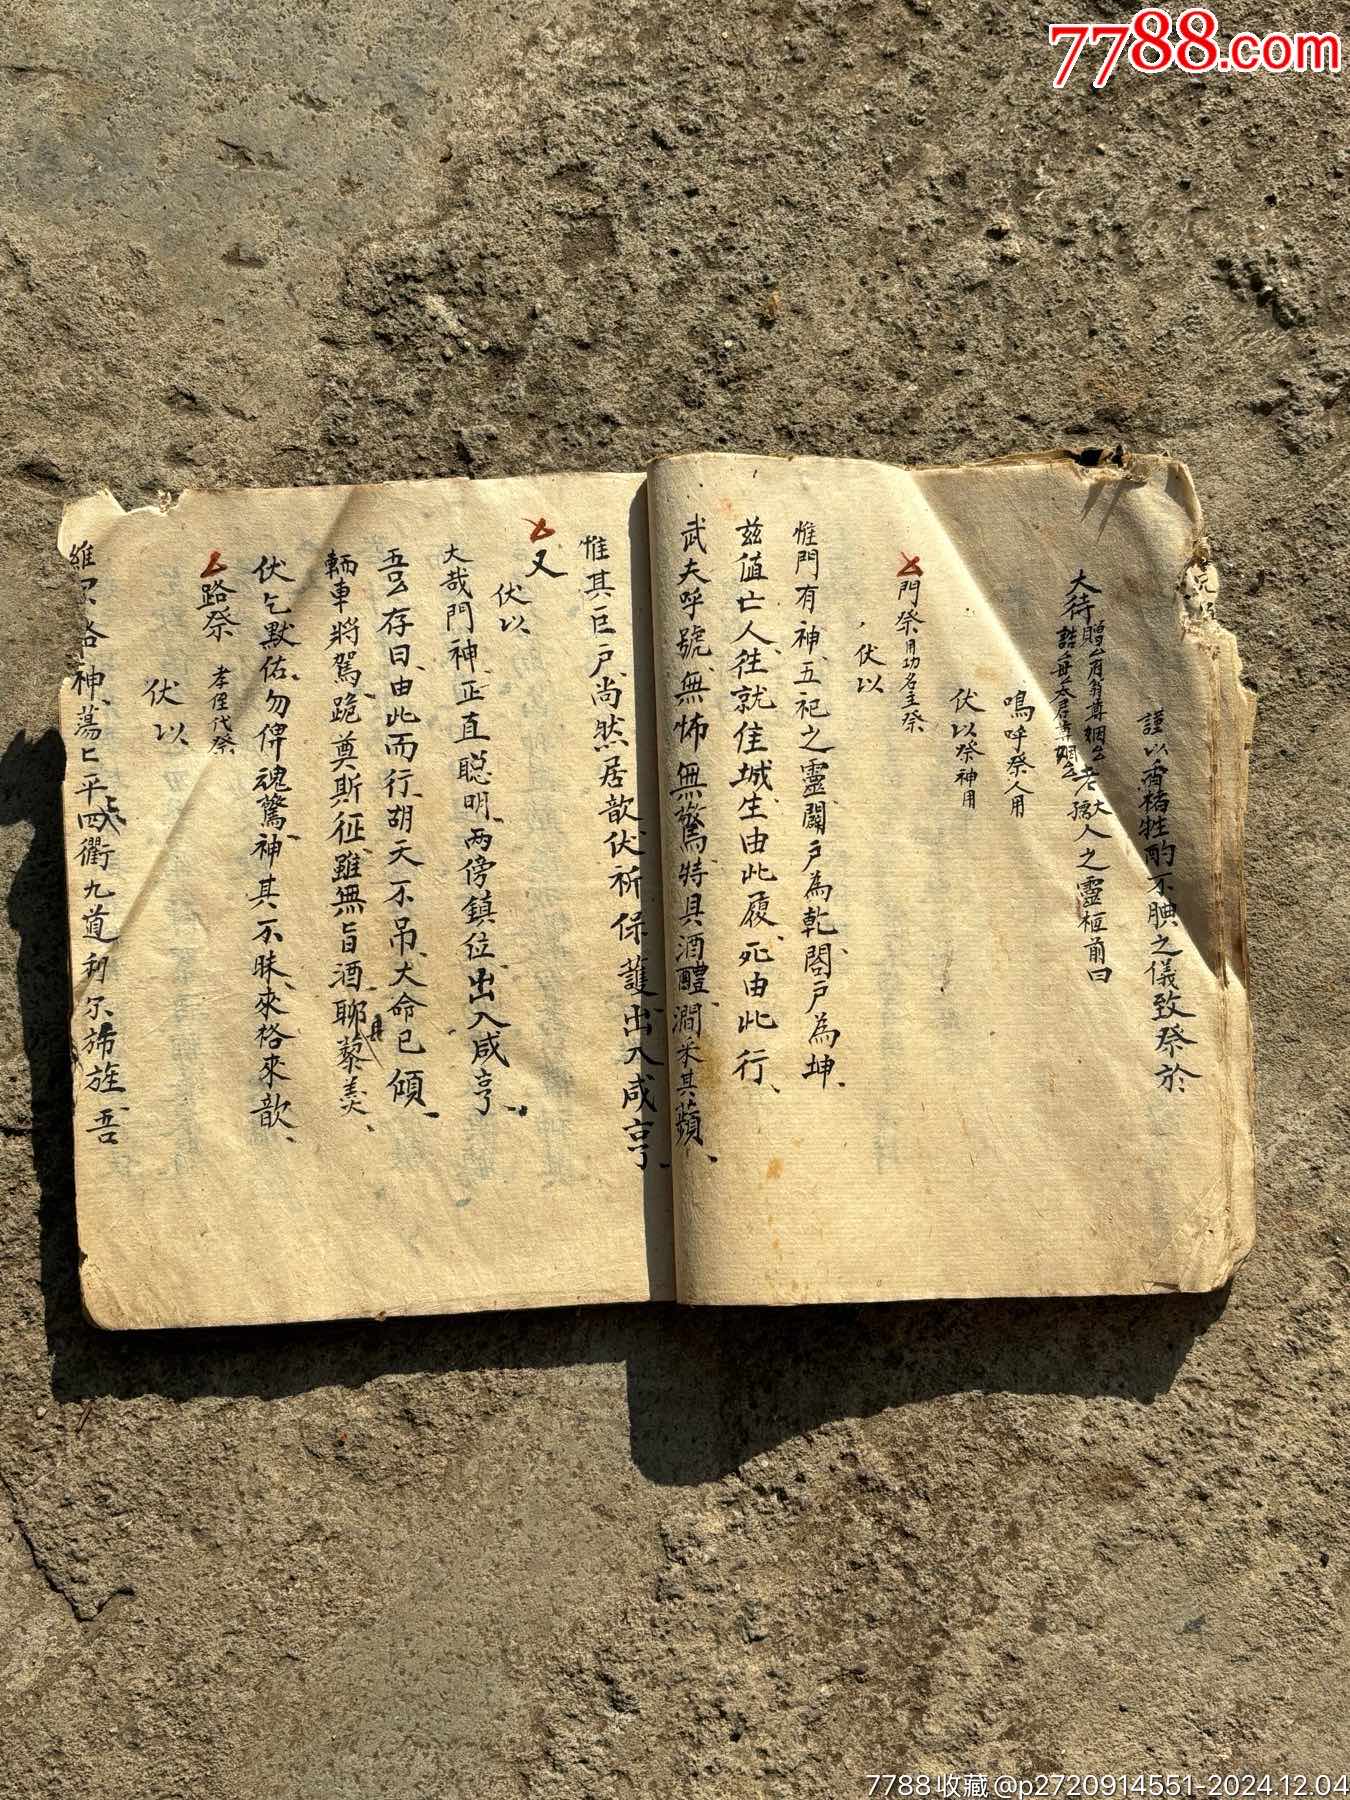 7788.com
謹以香楮牲酌不腆之儀致祭於
大待贈公府翁尊姻公老大人之靈柩前曰
誥母太君尊姻 孺
嗚呼祭人用
伏以祭神用
門祭用功名主祭
伏以
惟門有神五祀之靈闢戶為乾閤戶為坤
茲值亡人往就佳城生由此履死由此行
武夫呼號無怖無驚特具酒醴澗采其蘋
惟其巨戶尚然居歆伏祈保護出入咸亨
又
伏以
大哉門神正直聰明兩傍鎮位出入咸亨
吾公存日由此而行胡天不吊大命已傾
輀車將駕跪奠斯征雖無旨酒聊具藜羹
伏乞默佑勿俾魂驚神其不昧來格來歆
路祭 孝侄代祭
伏以
維 路神蕩匕平平四衢九道利尔旆旌吾
7788收藏@p2720914551-2024.12.04